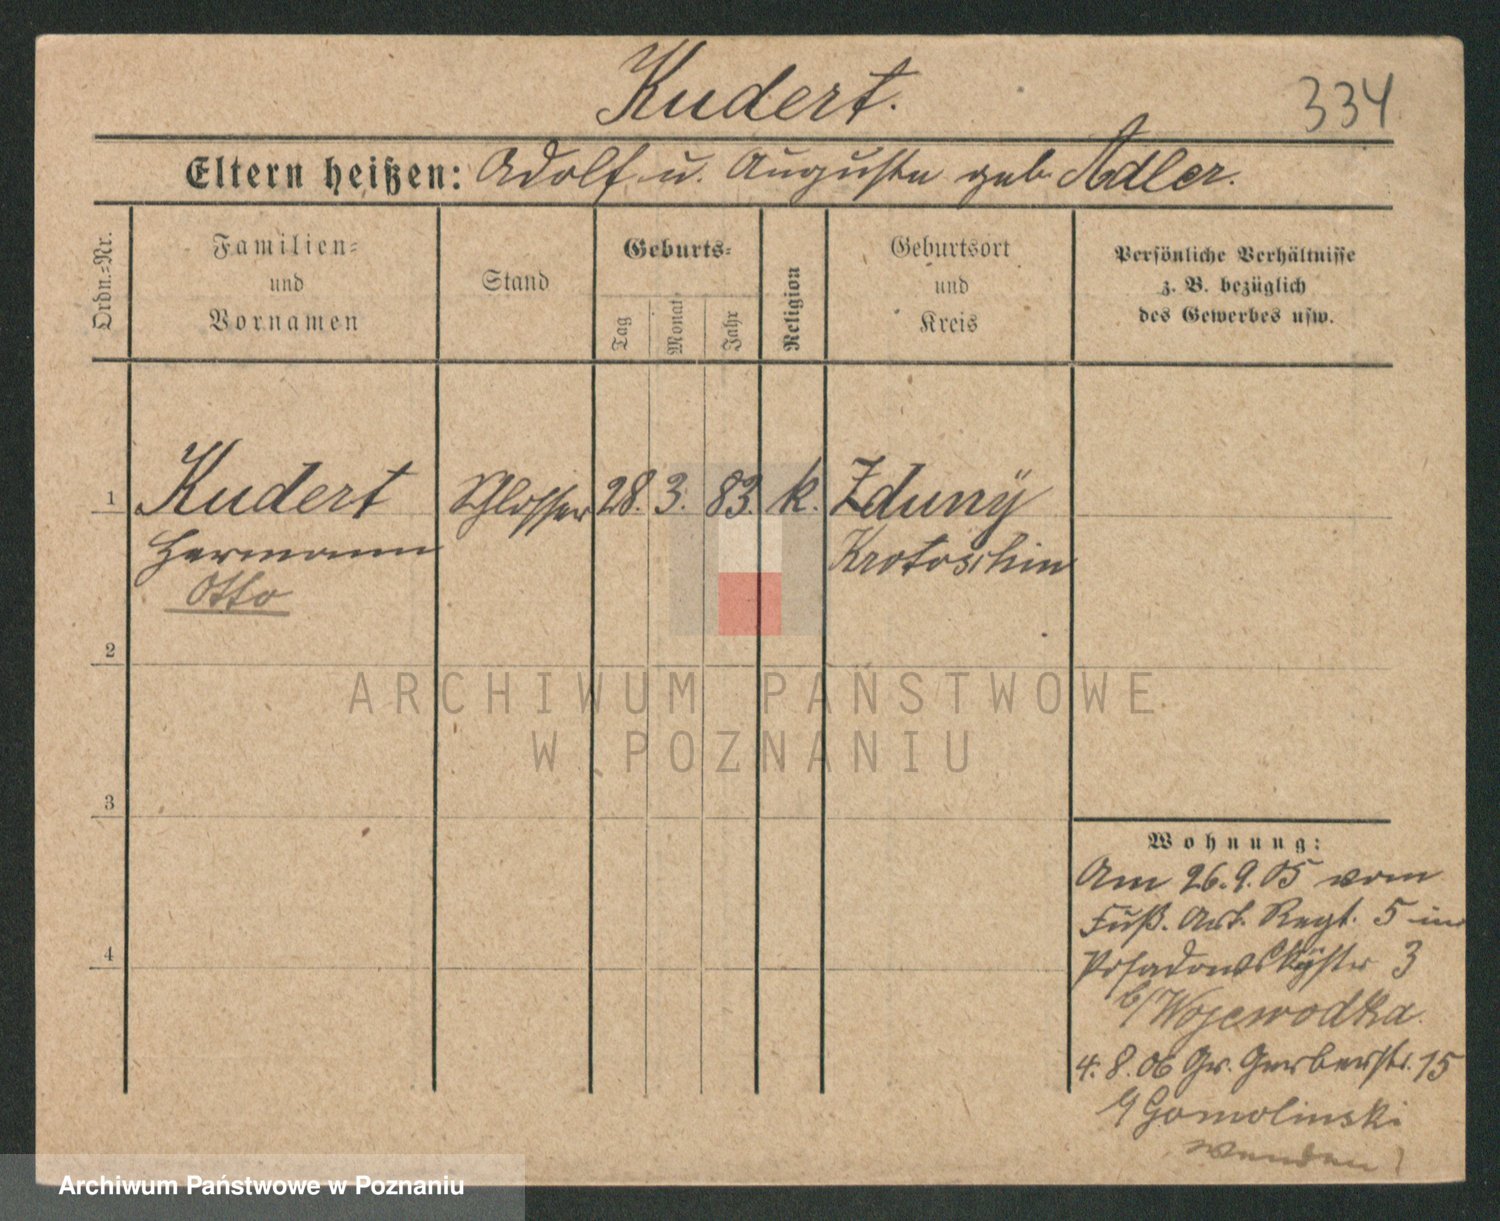 Kudert.
334
Eltern heißen: Adolf u. Auguste geb. Adler.
Ordn.-Nr.
Familien-
und
Vornamen
Stand
Geburts-
Tag
Monat
Jahr
Religion
Geburtsort
und
Kreis
Persönliche Verhältnisse
z. B. bezüglich
des Gewerbes usw.
1 Kudert Schlosser 28. 3. 83. k. Zduny
Hermann Krotoschin
Otto
2
ARCHIWUM PAŃSTWOWE
W POZNANIU
3
Wohnung:
Am 26.9.05 vom
Fuß. Art. Regt. 5 in
Posadowskystr 3
b/ Wojewodka.
4
4.8.06 Gr. Gerberstr. 15
b/ Gomolinski
wenden!
Archiwum Państwowe w Poznaniu